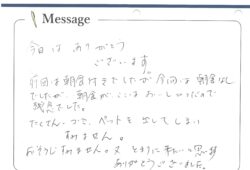 Message
今日は ありがとう
ございます。
前回は朝食付きでしたが 今回は 朝食なし
でしたが、朝食が、ここは おいしいので
残念でした。
たくさん ゴミ、ペットを 出してしまい
すみません。
おそうじ すみません。又 とまりに 来たいと思います
ありがとうございました。